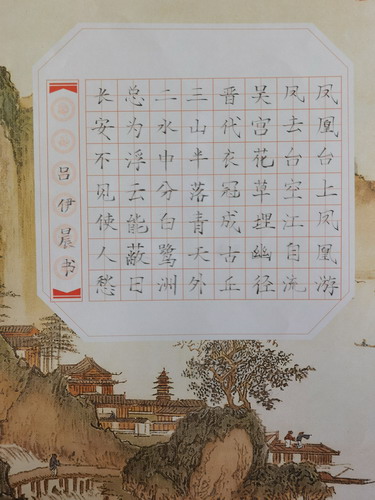 凤凰台上凤凰游
凤去台空江自流
吴宫花草埋幽径
晋代衣冠成古丘
三山半落青天外
二水中分白鹭洲
总为浮云能蔽日
长安不见使人愁
吕伊晨书